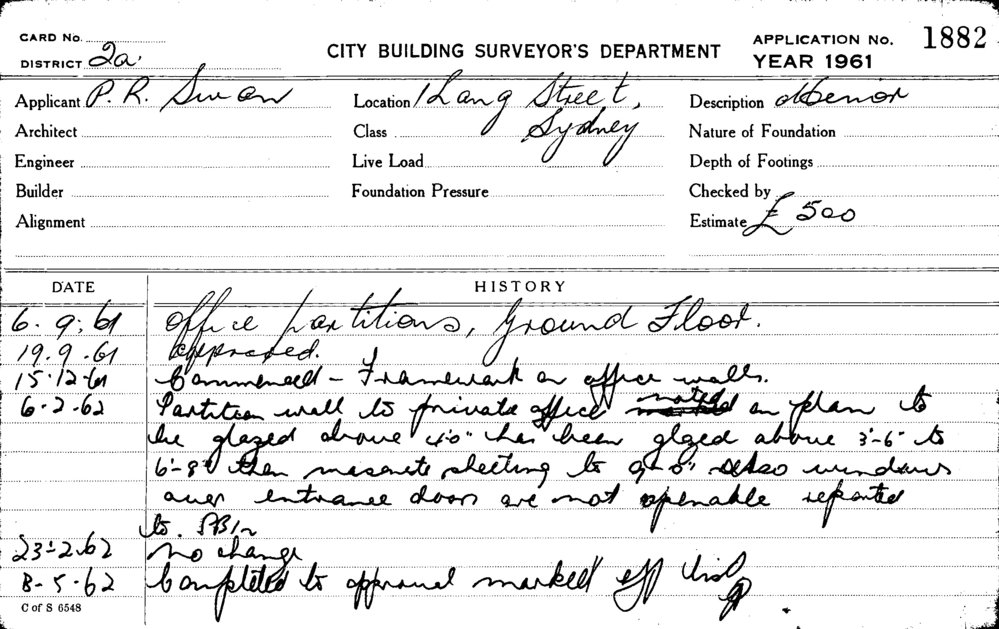 CARD No.
DISTRICT 2a
CITY BUILDING SURVEYOR'S DEPARTMENT
APPLICATION No. 1882
YEAR 1961
Applicant P. R. Swan
Location 1 Lang Street,
Sydney
Description
Architect
Class
Nature of Foundation
Engineer
Live Load
Depth of Footings
Builder
Foundation Pressure
Checked by
Alignment
Estimate £ 500
DATE HISTORY
6.9.61 Office partitions, Ground Floor.
19.9.61 approved.
15.12.61 Commenced - Framework on office walls.
6.2.62 Partition wall to private office noted on plan to
be glazed above 4'0" has been glazed above 3'-6" to
6'-8" then masonite sheeting to 9'-0" also windows
over entrance doors are not openable reported
to
23.2.62 no change
8-5-62 Completed to approval marked off
C of S 6548